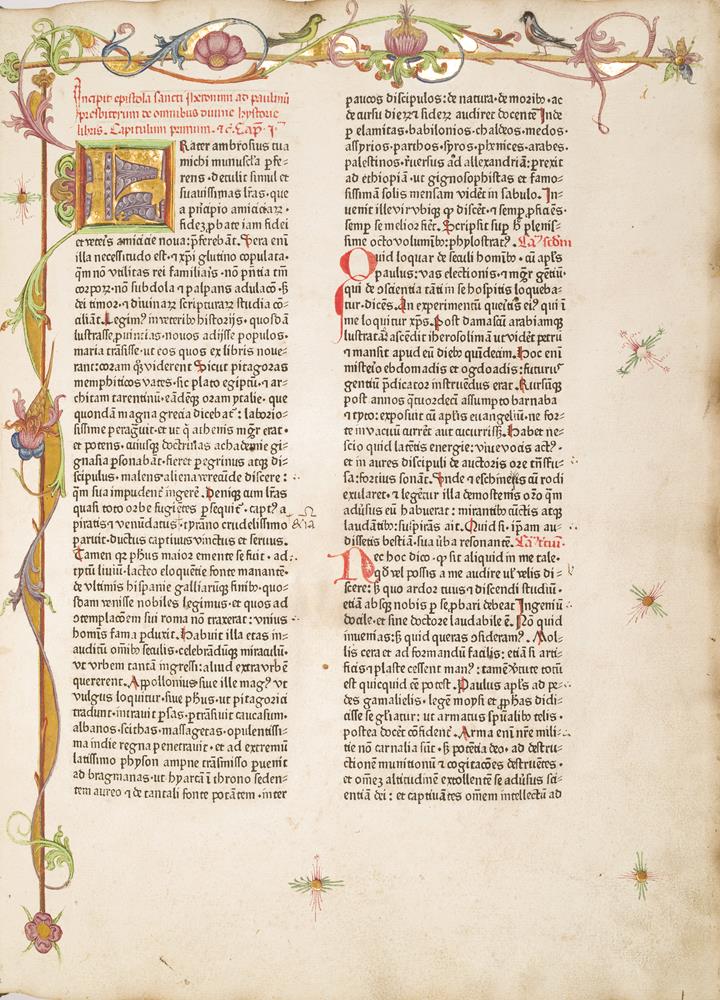 Incipit epistola sancti Iheronimi ad paulinū
presbiterum de omnibus diuine hystorie
libris. Capitulum primum. ⁊ c̄. Cap. j.
Rater ambrosius tua
michi munuscla ꝑfe-
rens · detulit simul et
suauissimas lr̄as · que
a pͥncipio amiciciaꝝ ·
fidē ꝓbate iam fidei
et veteris amicicie noua: p̄ferebāt. Vera enī
illa necessitudo est · ⁊ xp̄i glutino copulata ·
q̄m nō vtilitas rei familiaris · nō pn̄tia tm̄
corpoꝝ · nō subdola ⁊ palpans adulacō · ß
dei timor · ⁊ diuinaꝝ scripturaꝝ studia cō-
ciliāt. Legim⁹ in veterib⁹ historijs · quosdā
lustrasse ꝓuincias · nouos adijsse populos ·
maria trāsisse · ut eos quos ex libris noue-
rant: coram q̄ viderent. Sicut pitagoras
memphiticos vates · sic plato egiptū · ⁊ ar-
chitam tarentinū · eādēq; oram ytalie · que
quondā magna grecia dicebat̄: laborio-
sissime peragͣuit · et ut q̄ athenis mgr̄ erat ·
et potens · cuiusq; doctrinas achademie gi-
gnasia ꝑsonabāt · fieret ꝑegrinus atq; di-
scipulus · malens aliena verecūde discere:
q̄m sua impudent̄ ingere̅. Deniq; cum lr̄as
quasi toto orbe fugiētes ꝑsequit̄ · capt⁹ a
piratis ⁊ venūdatus · tyrāno crudelissimo
paruit · ductus captiuus vinctus et seruus.
Tamen qꝛ ph̄us maior emente se fuit · ad
tytū liuiū · lacteo eloquētie fonte manantē ·
de vltimis hispanie galliarūq; finib⁹ · quo-
sdam venisse nobiles legimus · et quos ad
ↄtemplacōem sui roma nō traxerat: vnius
homīs fama ꝑduxit. Habuit illa etas in-
auditū om̄ib⁹ seculis · celebrādūq; miraculū ·
ut vrbem tantā ingressi: aliud extra vrbē
quererent. Appollonius siue ille mag⁹ vt
vulgus loquitur · siue ph̄us · ut pitagorici
tradunt · intrauit ꝑsas · ꝑtrāsiuit caucasum ·
albanos · scithas · massagetas · opulentissi-
ma indie regna penetrauit · et ad extremū
latissimo physon ampne trāsmisso ꝑuenit
ad bragmanas · ut hyarcā ī throno seden-
tem aureo ⁊ de tantali fonte potātem · inter
paucos discipulos: de natura · de morib⁹ · ac
de cursu dieꝝ ⁊ sideꝝ audiret docentē. Inde
ꝑ elamitas · babilonios · chaldeos · medos ·
assyrios · parthos · syros · phenices · arabes ·
palestinos · r̄uersus ad allexandriā: ꝑrexit
ad ethiopiā · ut gignosophistas et famo-
sissimā solis mensam vidēt in sabulo. In-
uenit ille vir vbiq; qd̄ discēt · ⁊ semꝑ ꝓficiēs ·
semꝑ se melior fiēt. Scripsit suꝑ h̄ plenis-
sime octo volumīb⁹: phylostrat⁹. Ca. scd̄m
Quid loquar de seculi homīb⁹ · cū apl̄s
paulus: vas electionis · ⁊ mgr̄ gētiū ·
qui de ↄscientia tāti in se hospitis loqueba-
tur · dicēs. An experimentū queritis ei⁹ qui ī
me loquitur xp̄s. Post damascū arabiamq;
lustratā: ascēdit iherosolimā ut vidēt petrū
⁊ mansit apud eū dieb⁹ quīdecim. Hoc enī
misterio ebdomadis et ogdoadis: futurus
gentiū p̄dicator instruēdus erat. Rursūq;
post annos quatuordecī assumpto barnaba
⁊ tyto: exposuit cū apl̄is euangeliū · ne for-
te in vacuū curret aut cucurrissȝ. Habet ne-
scio quid latētis energie: viue vocis act⁹ ·
et in aures discipuli de auctoris ore trāsfu-
sa: fortius sonāt. Vnde ⁊ eschines cū rodi
exularet · ⁊ legēt̄ illa demostenis oro̅ q̄m
aduersus eū habuerat: mirantib⁹ cūctis atq;
laudātib⁹: suspirās ait. Quid si · ip̄am au-
dissetis bestiā · sua ūba resonantē. Ca. tciū.
Nec hoc dico · ꝙ sit aliquid in me tale ·
qd̄ vel possis a me audire ul̄ velis di-
scere: ß quo ardor tuus ⁊ discendi studiū ·
etiā absq; nobis ꝑ se ꝓbari debeat. Ingeniū
docile · et sine doctore laudabile ē. Nō quid
inuenias: ß quid queras ↄsideram⁹. Mol-
lis cera et ad formandū facilis: etiā si arti-
ficis ⁊ plaste cessent man⁹: tamē v̄tute totū
est quicquid eē potest. Paulus apl̄s ad pe-
des gamalielis · legē moysi et ꝓphas didi-
cisse se gl̄iatur: ut armatus spūalib⁹ telis ·
postea docēt ↄfident̄. Arma enī nr̄e mili-
tie nō carnalia sūt · ß potētia deo · ad destru-
ctionē munitionū ⁊ cogitacōes destruētes ·
et om̄eȝ altitudinē extollentē se aduersus sci-
entiā dei: et captiuātes om̄em intellectū ad